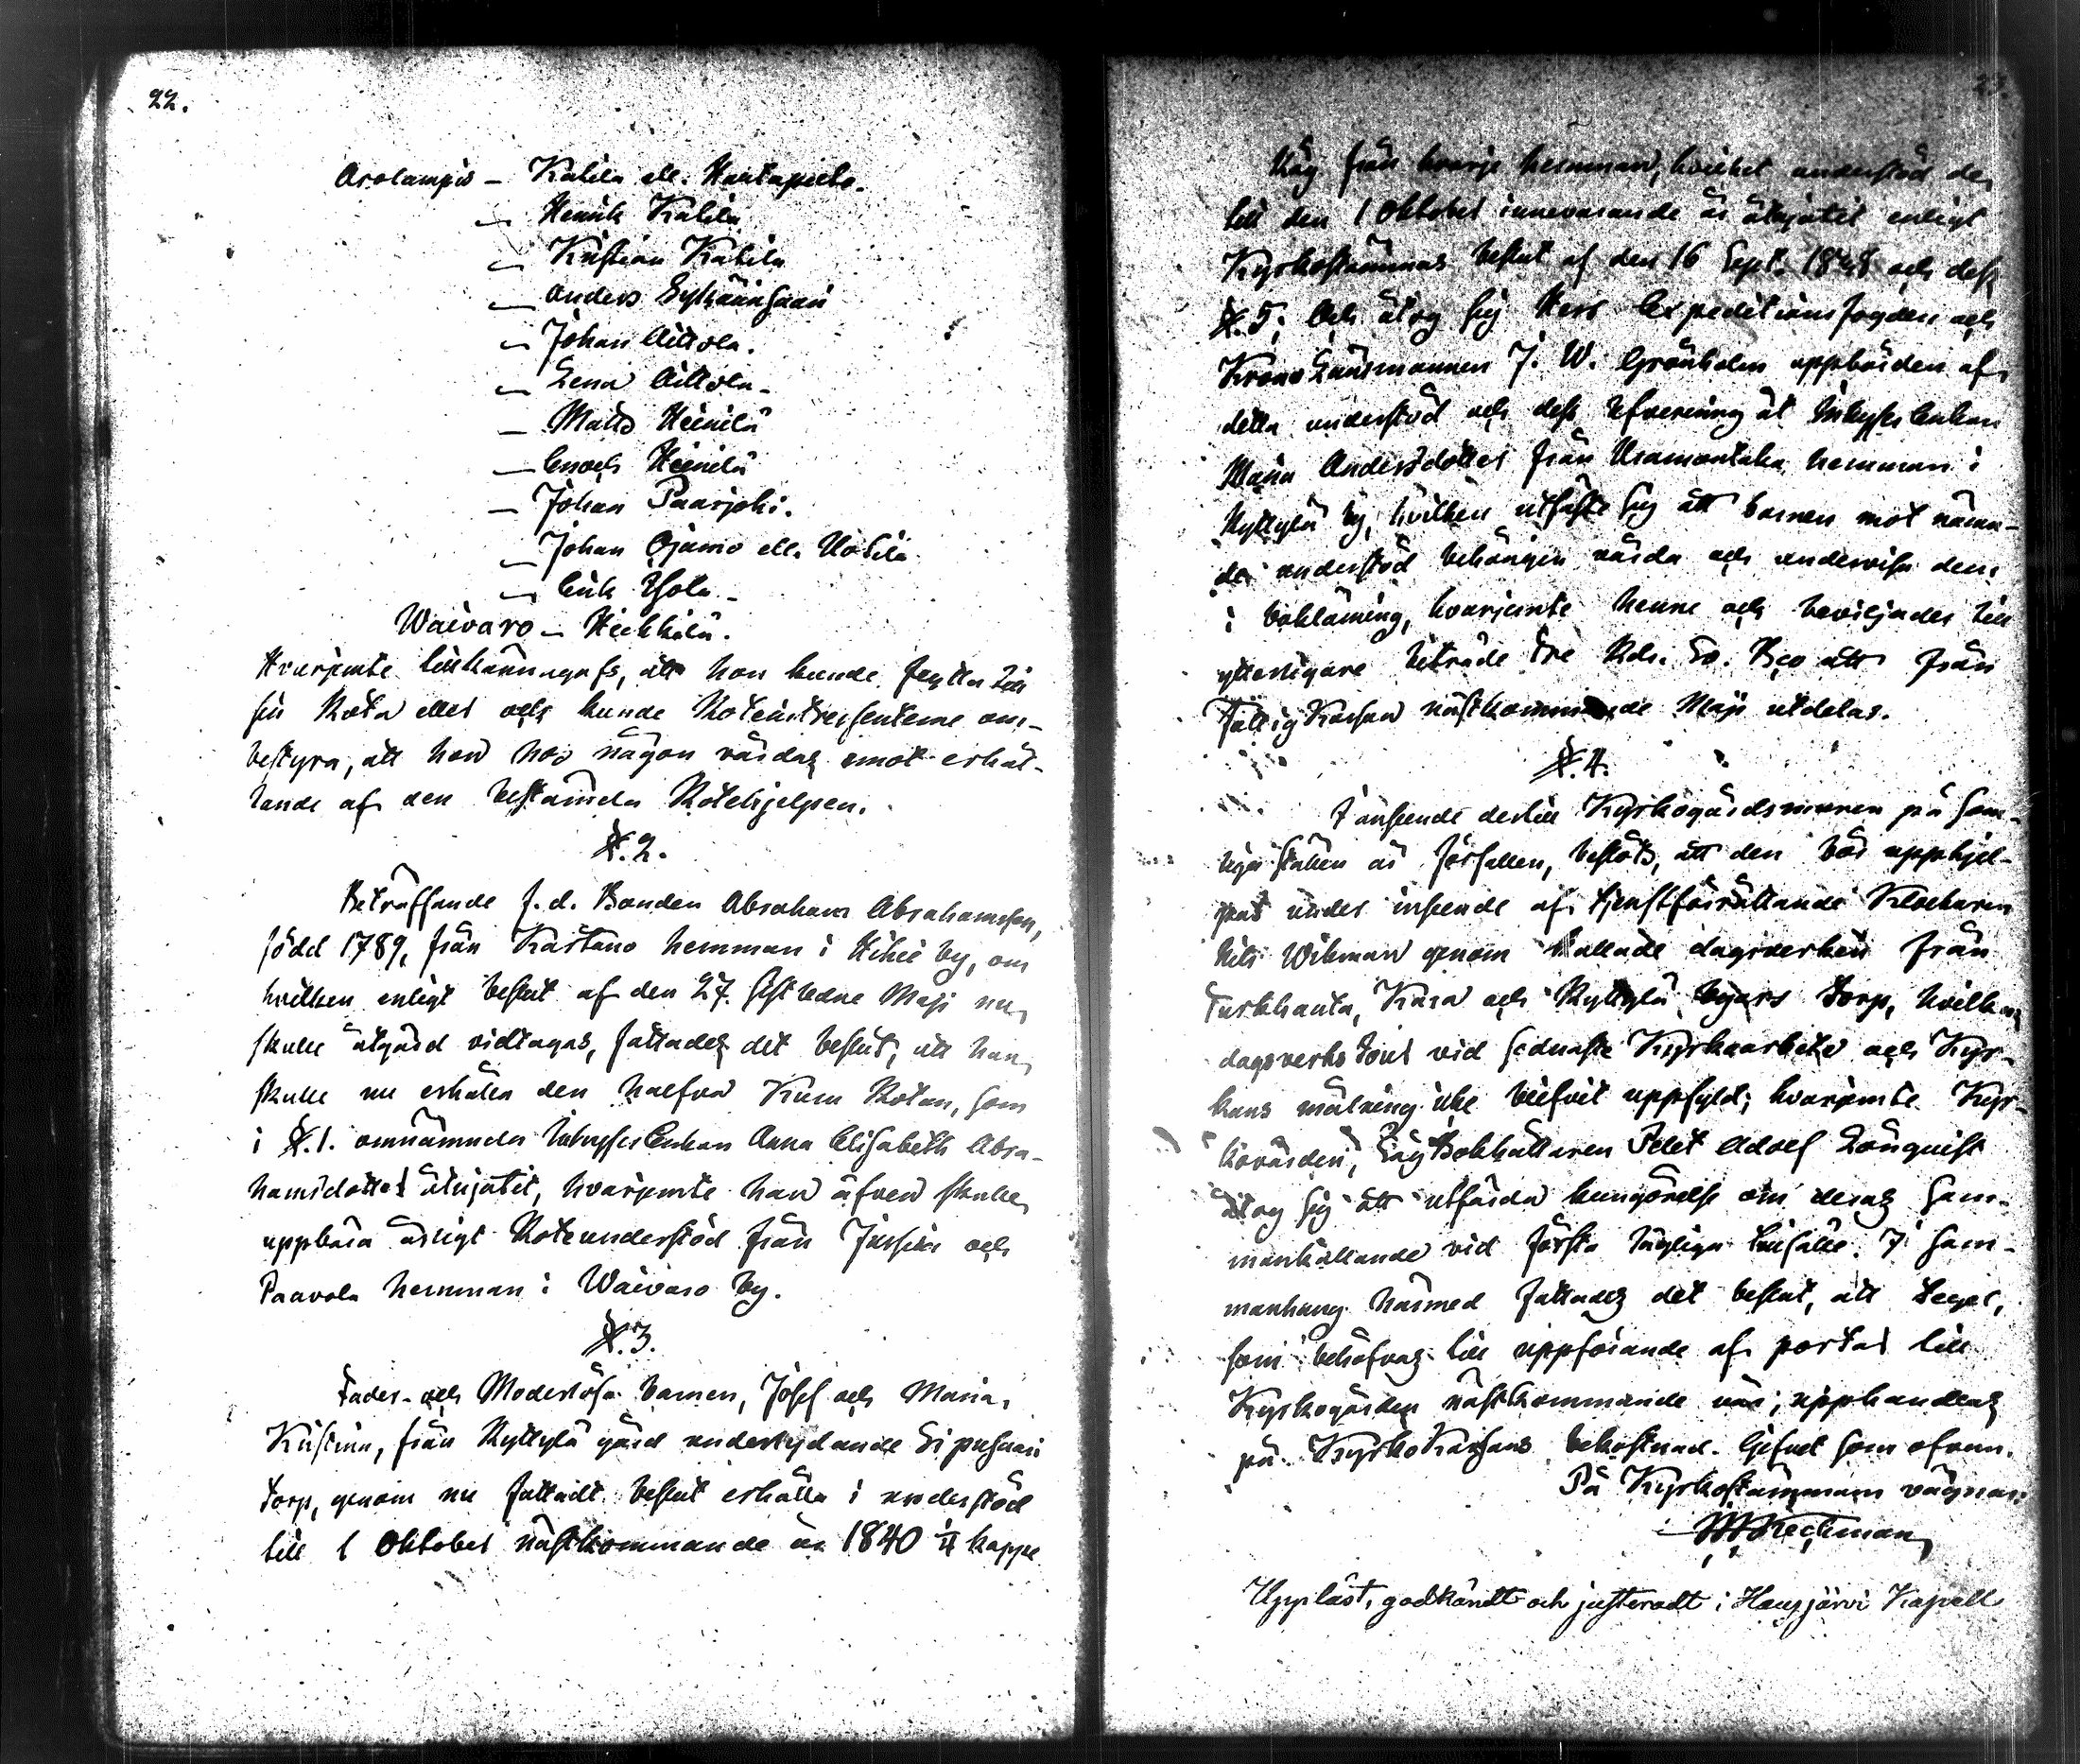 22.
Arolampio – Katila ell. Hantapelto.
— Henrik Katila
— Kristian Katila
— Anders
— Johan Aittola.
— Lena Aittola –
— Matts Heinilä
— Enoch Heinilä
— Johan Paarjoki.
— Johan Ojamo ell. Uotila
— Erik Ysola –
Waivaro – Heikkilä.
Hvarjemte tillkännagafs, att hon kunde flytta till
sin Rota eller ock kunde Roteintressenterne om-
bestyra, att hon hos någon vårdas emot erhål-
lande af den bestämda Rotehjelpen.
§. 2.
Beträffande f. d. Bonden Abraham Abrahamsson,
född 1789, från Kaštano hemman i Hikiä by, om
hvilken enligt beslut af den 27. sistledne Maji nu
skulle åtgärd vidtagas, fattades det beslut, att han
skulle nu erhålla den halfva Kara Rotan, som
i §. 1. omnämnda Inhyses Enkan Anna Elisabeth Abra-
hamsdotter åtnjutit, hvarjemte han äfven skulle
uppbära årligt Roteunderstöd från Jussila och
Paavola hemman i Waivaro by.
§. 3.
Fader- och Moderlösa barnen, Josef och Maria
Kristina, från Ryttylä gård underlydande Sipusaari
torp, genom nu fattadt beslut erhålla i understöd
till 1 Oktober nästkommande år 1840 1/4 kappe
23.
Råg från hvarje hemman, hvilket understöd de
till den 1 Oktober innevarande år åtnjutit enligt
Kyrkostämmas beslut af den 16 Sept. 1848 och dess
§. 5; Och åtog sig Herr Expeditionsfogden och
Krono Länsmannen J. W. Grönholm uppbörden af
detta understöd och dess lefverering åt Inhyses Enkan
Maria Andersdotter från Uramontaka hemman i
Ryttylä by, hvilken utfäste sig att barnen mot nämn-
de understöd behörigen vårda och undervisa dem
i bokläsning, hvarjemte henne och beviljades till
ytterligare biträde tre Rdr. Sv. Bco att från
Fattig Kassan nästkommande Maji utdelas.
§. 4.
I anseende dertill Kyrkogårdsmuren på som-
liga ställen är förfallen, beslöts, att den bör upphjel-
pas under inseende af tjenstförrättande Klockaren
Nils Wikman genom kallade dagsverken från
Turkhauta, Kara och Ryttylä byars torp, hvilka
dagsverks tour vid sednaste Kyrkoarbete och Kyr-
kans målning icke blifvit uppfyld; hvarjemte Kyr-
kovärden, Låg Bokhållaren Petter Adolf Lönqvist
åtog sig att utfärda kungörelse om deras sam-
mankallande vid första lägliga tillfälle. I sam-
manhang härmed fattades det beslut, att Tegel,
som behöfvas till uppförande af portar till
Kyrkogården nästkommande vår, upphandlas
på Kyrko Kassans bekostnad. Gifvet som ofvan.
På Kyrkostämmans vägnar:
Uppläst, godkändt och justeradt i Hausjärvi Kapell